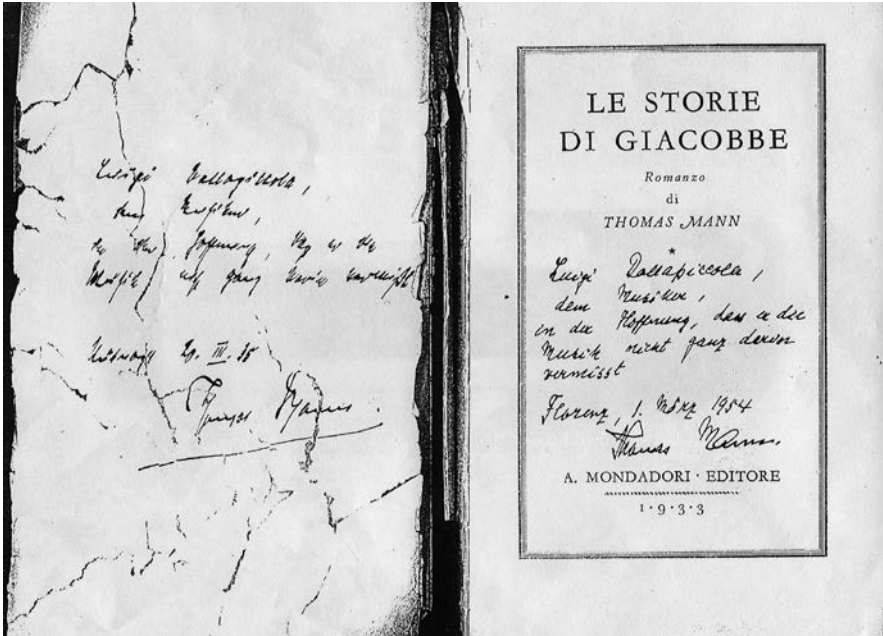 Luigi Dallapiccola,
dem Musiker,
in der Hoffnung, daß er die
Musik nicht ganz darin vermißt
III. 35
Thomas Mann.
LE STORIE
DI GIACOBBE
Romanzo
di
THOMAS MANN
*
Luigi Dallapiccola,
dem Musiker,
in der Hoffnung, dass er die
Musik nicht ganz darin
vermisst
Florenz, 1. März 1954
Thomas Mann.
A. MONDADORI · EDITORE
1·9·3·3